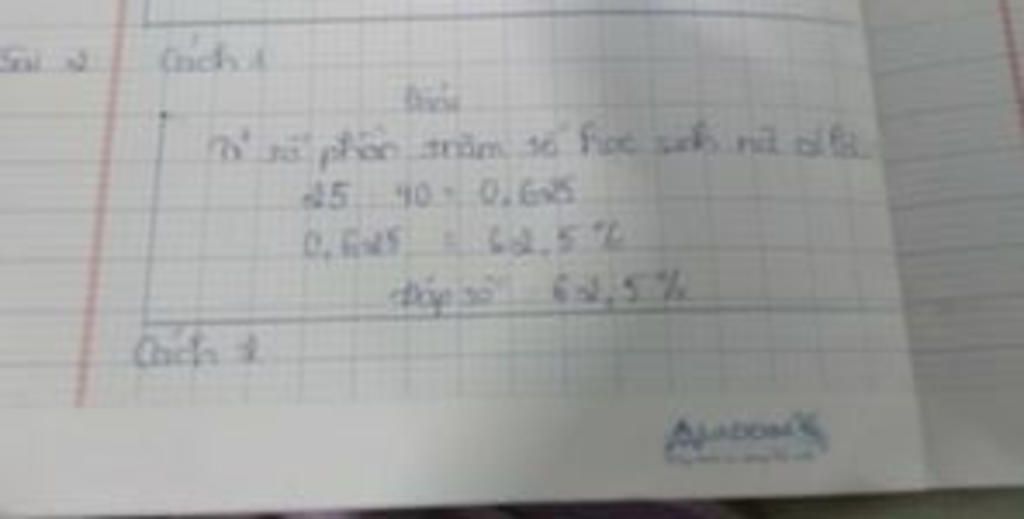 Bài 2
Cách 1
Giải
Tỉ số phần trăm số học sinh nữ
25 40 = 0,625
0,625 = 62,5 %
đáp số 62,5 %
Cách 2